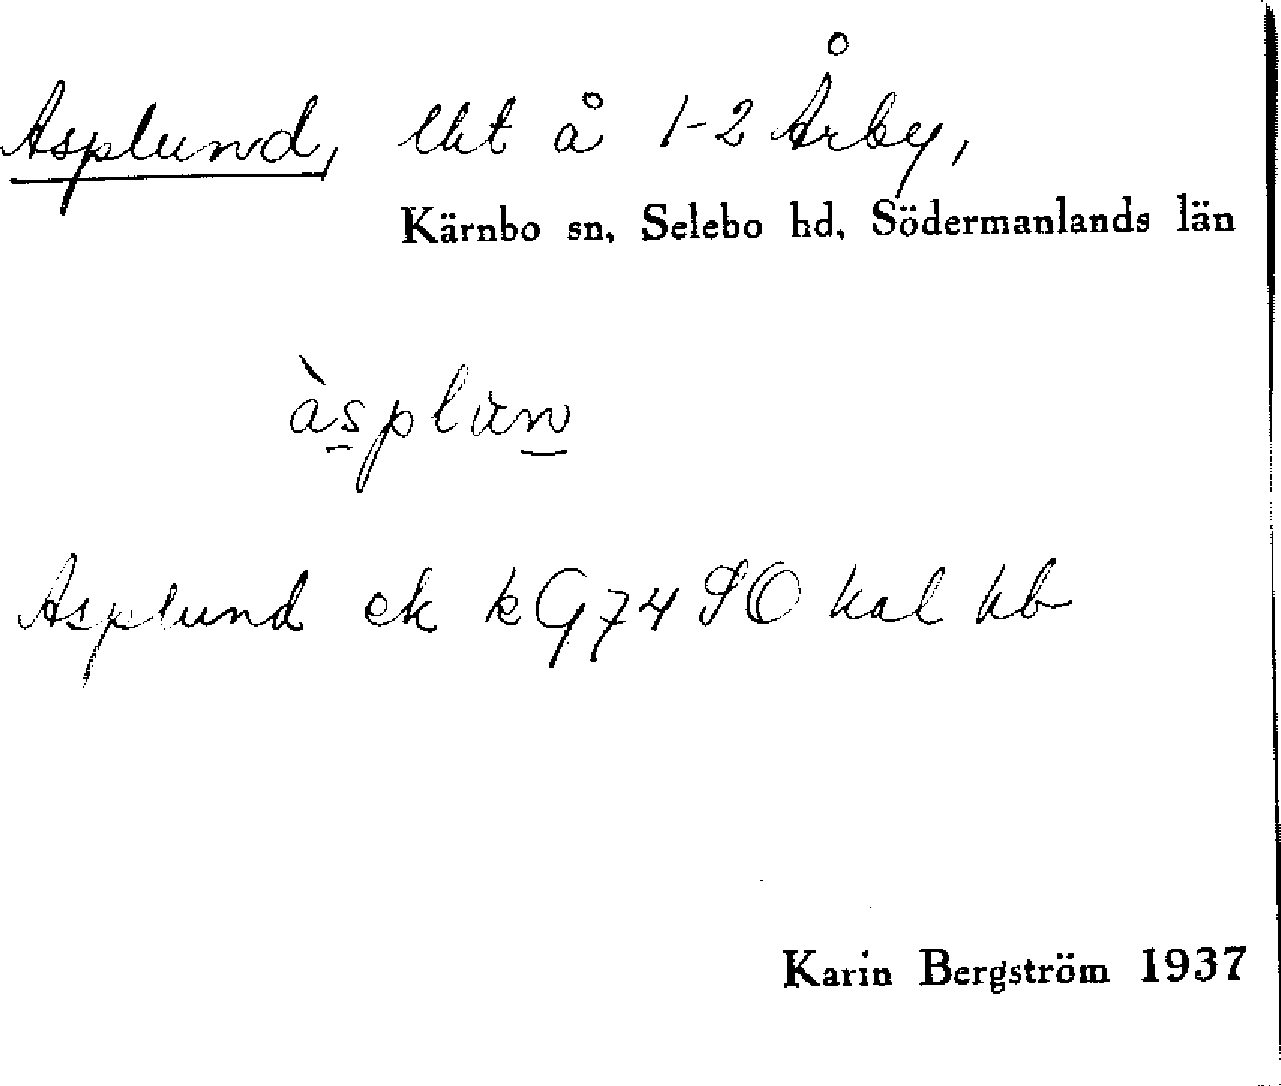 Asplund, lht å 1-2 Årby,
Kärnbo sn, Selebo hd, Södermanlands län
àsplun
Asplund ek kG74 SO hal hb
Karin Bergström 1937